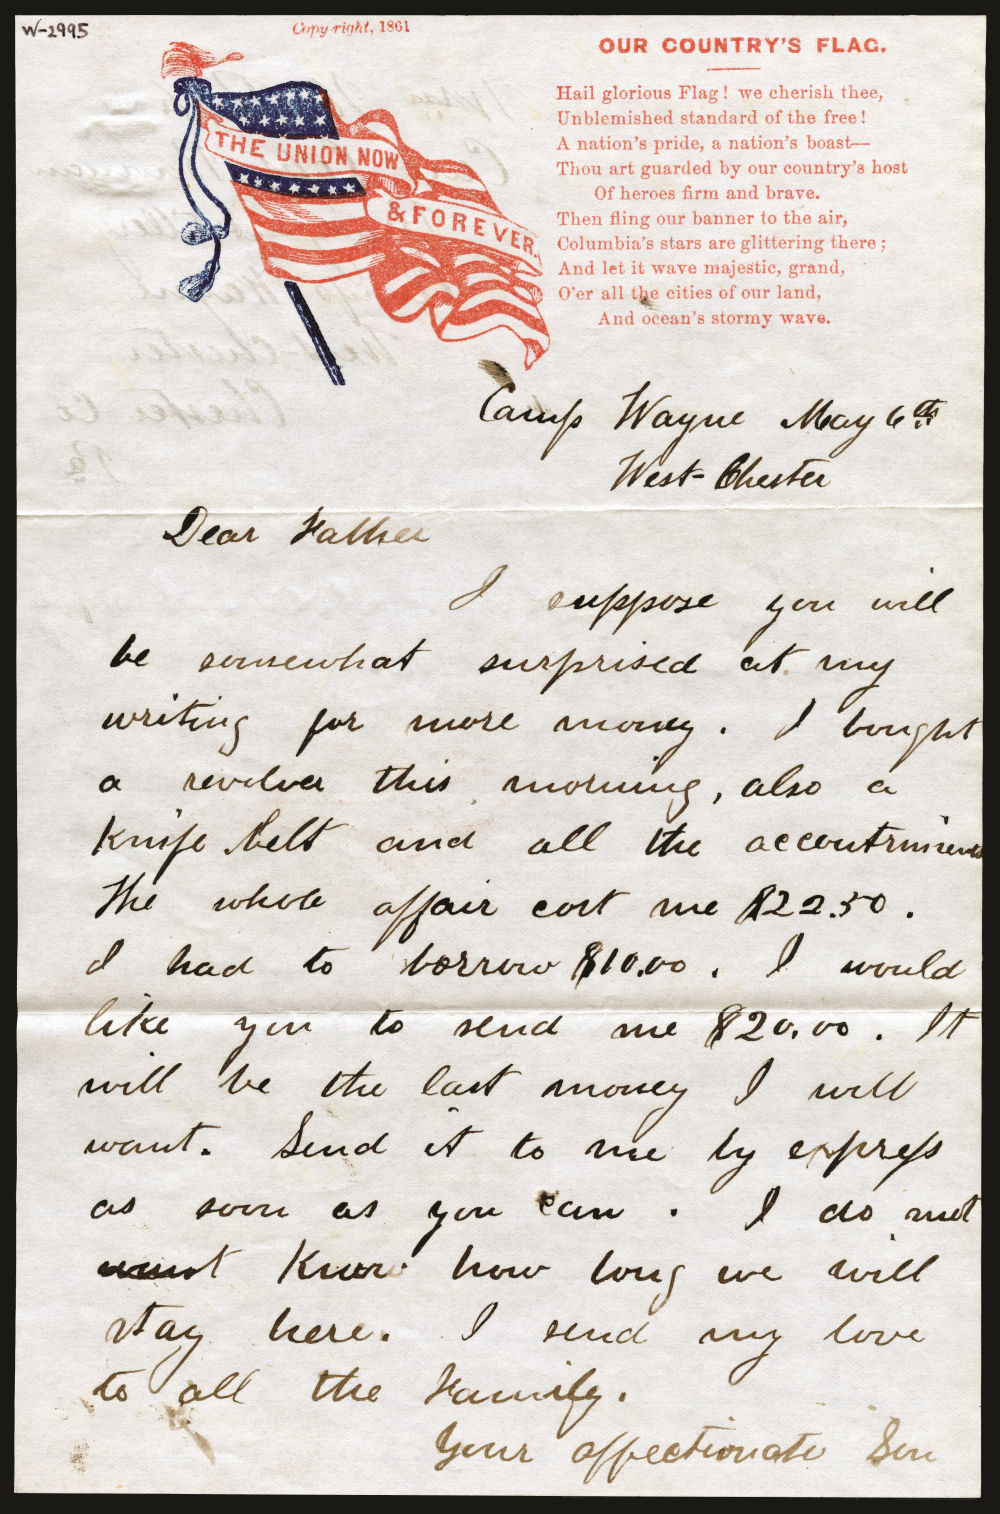 W-2995
Copy-right, 1861
THE UNION NOW
& FOREVER.
OUR COUNTRY'S FLAG.
Hail glorious Flag! we cherish thee,
Unblemished standard of the free!
A nation's pride, a nation's boast—
Thou art guarded by our country's host
Of heroes firm and brave.
Then fling our banner to the air,
Columbia's stars are glittering there;
And let it wave majestic, grand,
O'er all the cities of our land,
And ocean's stormy wave.
Camp Wayne May 6th
West-Chester
Dear Father
I suppose you will
be somewhat surprised at my
writing for more money. I bought
a revolver this morning, also a
Knife belt and all the
The whole affair cost me $22.50.
I had to borrow $10.00. I would
like you to send me $20.00. It
will be the last money I will
want. Send it to me by express
as soon as you can. I do not
Know how long we will
stay here. I send my love
to all the Family.
Your affectionate Son